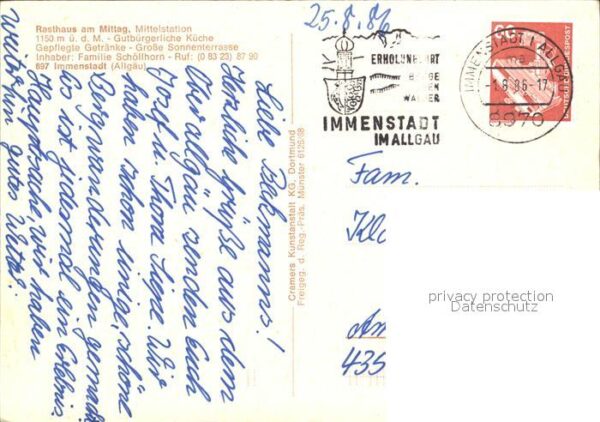 Rasthaus am Mittag, Mittelstation
1150 m ü. d. M. - Gutbürgerliche Küche
Gepflegte Getränke - Große Sonnenterrasse
Inhaber: Familie Schöllhorn - Ruf: (0 83 23) 87 90
897 Immenstadt (Allgäu)
Liebe
Herzliche Grüße aus dem
Oberallgäu senden Euch
Josef u. Thora Wir
haben schon einige schöne
Bergwanderungen gemacht
Es ist jedesmal ein Erlebnis.
Hauptsache wir haben
weiterhin gutes
Cramers Kunstanstalt KG, Dortmund
Freigeg. d. Reg.-Präs. Münster 6126/68
25.8.86
ERHOLUNGSORT
IMMENSTADT
IM ALLGÄU
IMMENSTADT I ALLGÄU
-1.9.86-17
8970
DEUTSCHE BUNDESPOST
Fam.
Kl
Am
435
privacy protection
Datenschutz